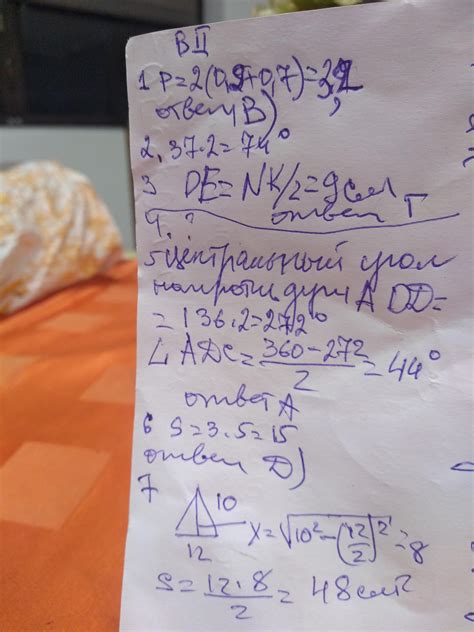 В II
1 P=2(0,9+0,7)=3,2
ответ В)
2, 37·2=74°
3 DE=NK/2=9см
ответ Г
4. ?
5 центральный угол
напротив дуги ADC=
=136·2=272°
∠ADC=360-272/2=44°
ответ А
6 S=3·5=15
ответ D)
7
10
12 x=√10²-(12/2)²=8
S=12·8/2=48см²